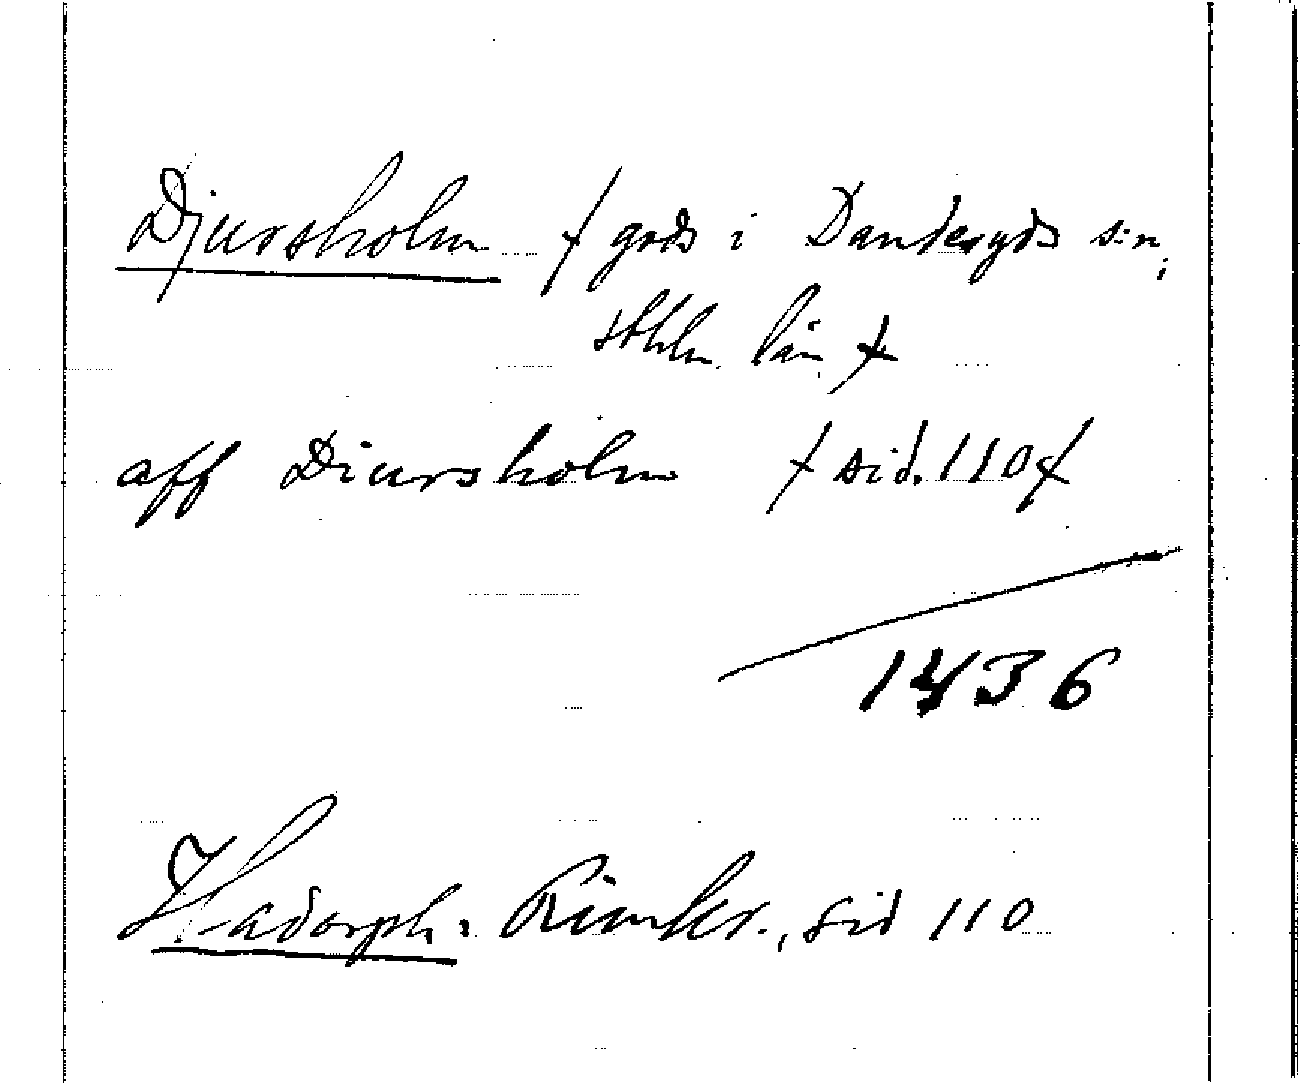 Djursholm / gods i Danderyds sn,
Sthlm. län /
aff Diursholm / sid. 110 /
1436
Hadorph: Rimkr., sid 110